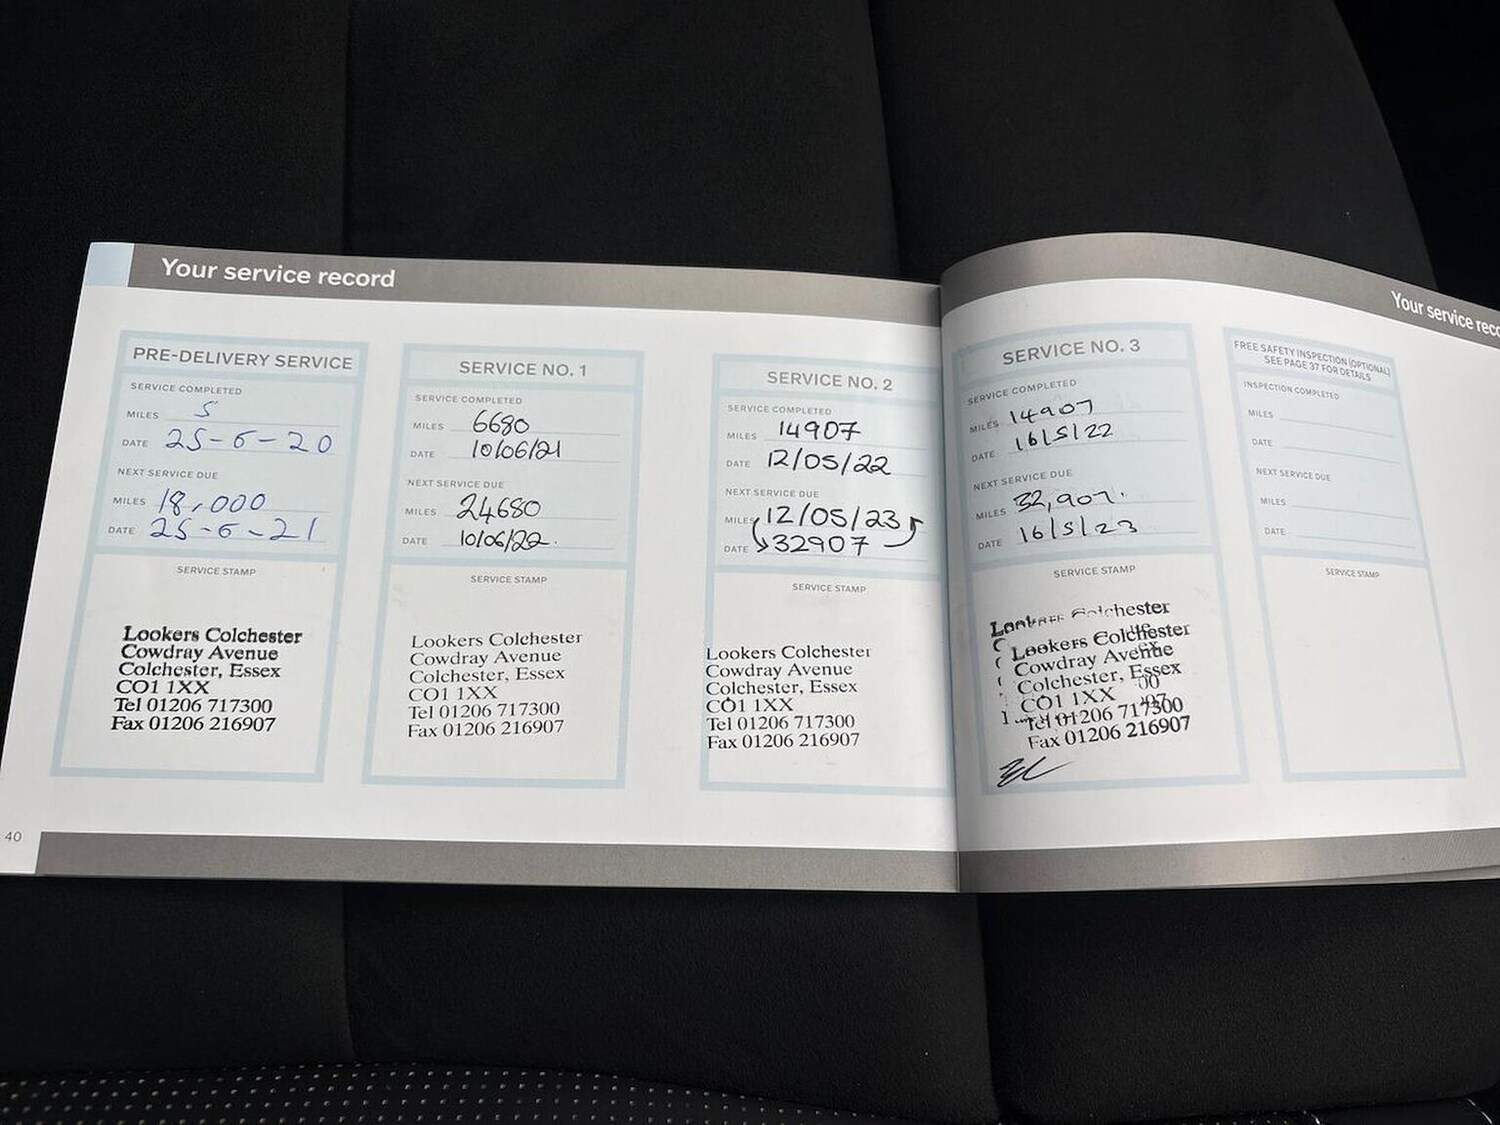 Your service record
PRE-DELIVERY SERVICE
SERVICE COMPLETED
MILES 5
DATE 25-6-20
NEXT SERVICE DUE
MILES 18,000
DATE 25-6-21
SERVICE STAMP
Lookers Colchester
Cowdray Avenue
Colchester, Essex
CO1 1XX
Tel 01206 717300
Fax 01206 216907
SERVICE NO. 1
SERVICE COMPLETED
MILES 6680
DATE 10/06/21
NEXT SERVICE DUE
MILES 24680
DATE 10/06/22.
SERVICE STAMP
Lookers Colchester
Cowdray Avenue
Colchester, Essex
CO1 1XX
Tel 01206 717300
Fax 01206 216907
SERVICE NO. 2
SERVICE COMPLETED
MILES 14907
DATE 12/05/22
NEXT SERVICE DUE
MILES 12/05/23
DATE 32907
SERVICE STAMP
Lookers Colchester
Cowdray Avenue
Colchester, Essex
CO1 1XX
Tel 01206 717300
Fax 01206 216907
40
Your service
SERVICE NO. 3
SERVICE COMPLETED
MILES 14907
DATE 16/5/22
NEXT SERVICE DUE
MILES 32,907.
DATE 16/5/23
SERVICE STAMP
Colchester
Lookers Colchester
Cowdray Avenue
Colchester, Essex
CO1 1XX
Tel 01206 717300
Fax 01206 216907
FREE SAFETY INSPECTION (OPTIONAL)
SEE PAGE 37 FOR DETAILS
INSPECTION COMPLETED
MILES
DATE
NEXT SERVICE DUE
MILES
DATE
SERVICE STAMP